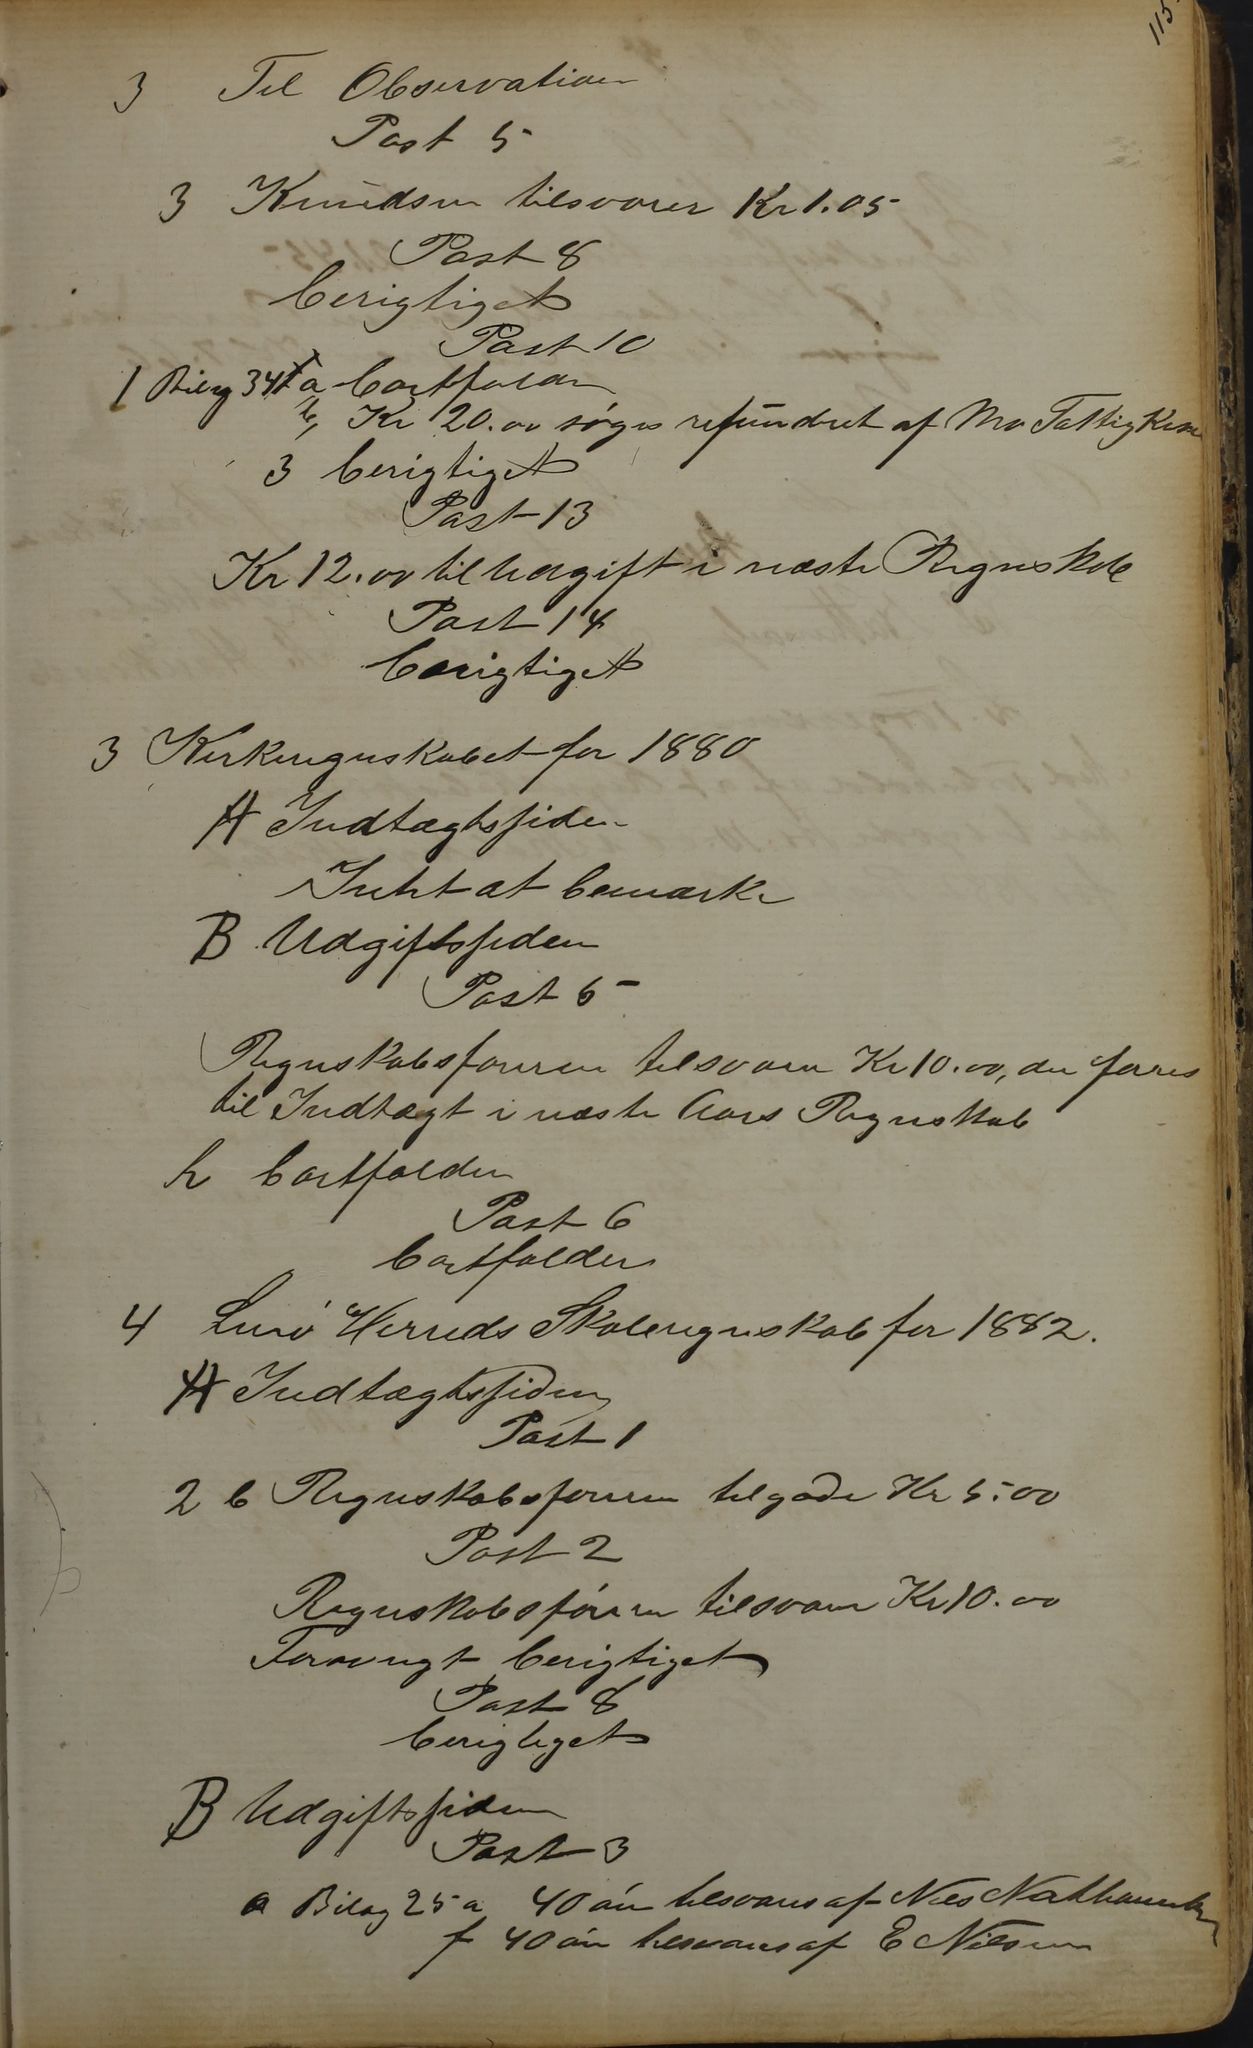 115
3 Til Observation
Post 5
3 Knudsen tilsvarer Kr 1.05
Post 8
berigtiget
Post 10
1 Bilag 34 a bortfalder
b, Kr 20.00 søges refundret af Mo Fattigkasse
3 berigtiget
Post 13
Kr 12.00 til Udgift i næste Regnskab
Post 14
berigtiget
3 Kirkeregnskabet for 1880
A Indtægtssiden
Intet at bemærke
B Udgiftssiden
Post 5
Regnskabsføreren tilsvarer Kr 10.00, der føres
til Indtægt i næste Aars Regnskab
h bortfalder
Post 6
bortfalder
4 Lurø Herreds Skoleregnskab for 1882.
A Indtægtssiden
Post 1
2 b Regnskabsføreren tilgode Kr 5.00
Post 2
Regnskabsføreren tilsvarer Kr 10.00
Forøvrigt berigtiget
Post 8
berigtiget
B Udgiftssiden
Post 3
a Bilag 25 a 40 øre tilsvares af Nils Nathanielsen
f 40 øre tilsvares af E Nilsen